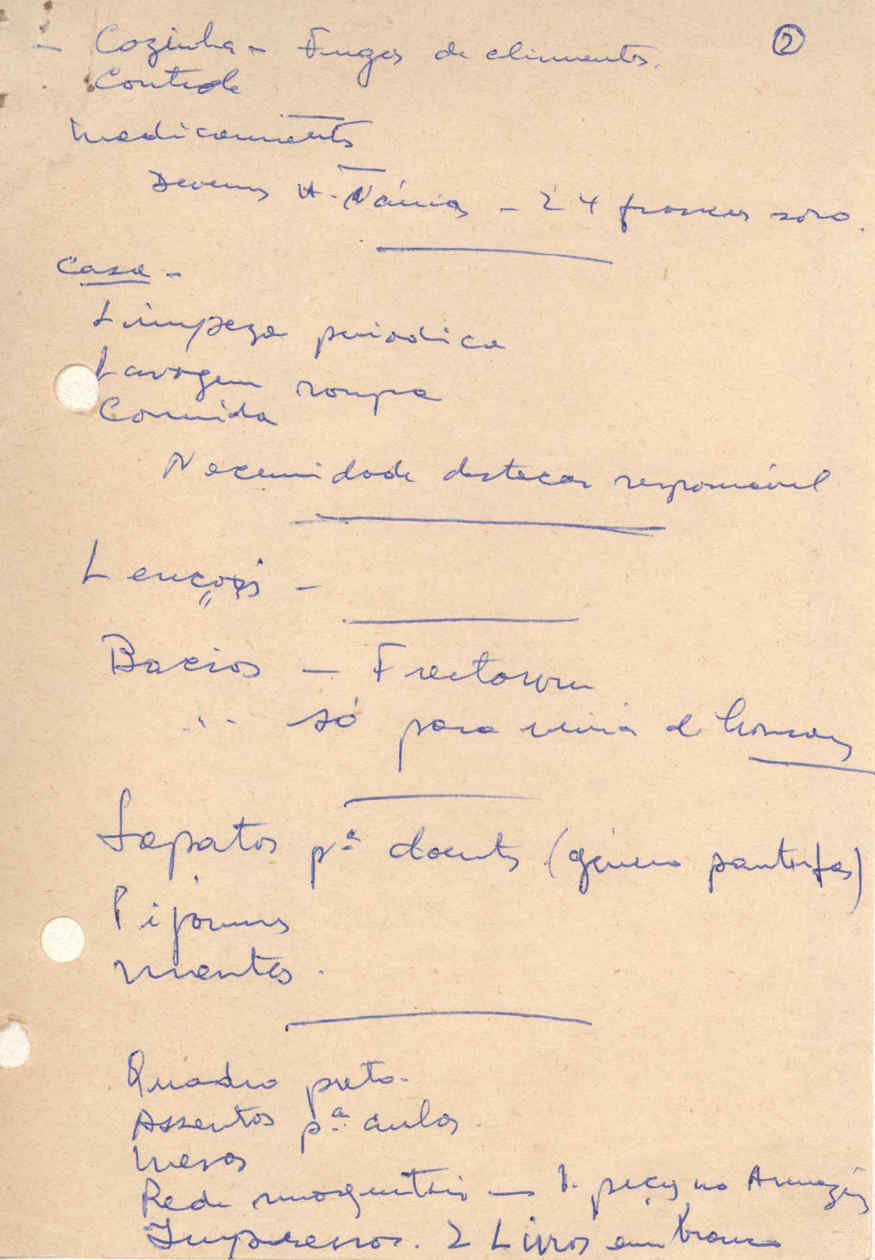 ②
- Cozinha - Fugas de alimentos.
Controle
Medicamentos
Devemos H. Várias - 24 frascos soro.
Casa -
Limpeza periódica
Lavagem roupa
Comida
Necessidade destacar responsável
Lençois -
Bacios -
" só para urina de homens
Sapatos pª doentes (género pantufas)
Pijamas
Mantas.
Quadro preto.
Assentos pª aulas.
Mesas
Rede mosquiteiro - 1 peça no Armazém
Impressos. 2 Livros em branco